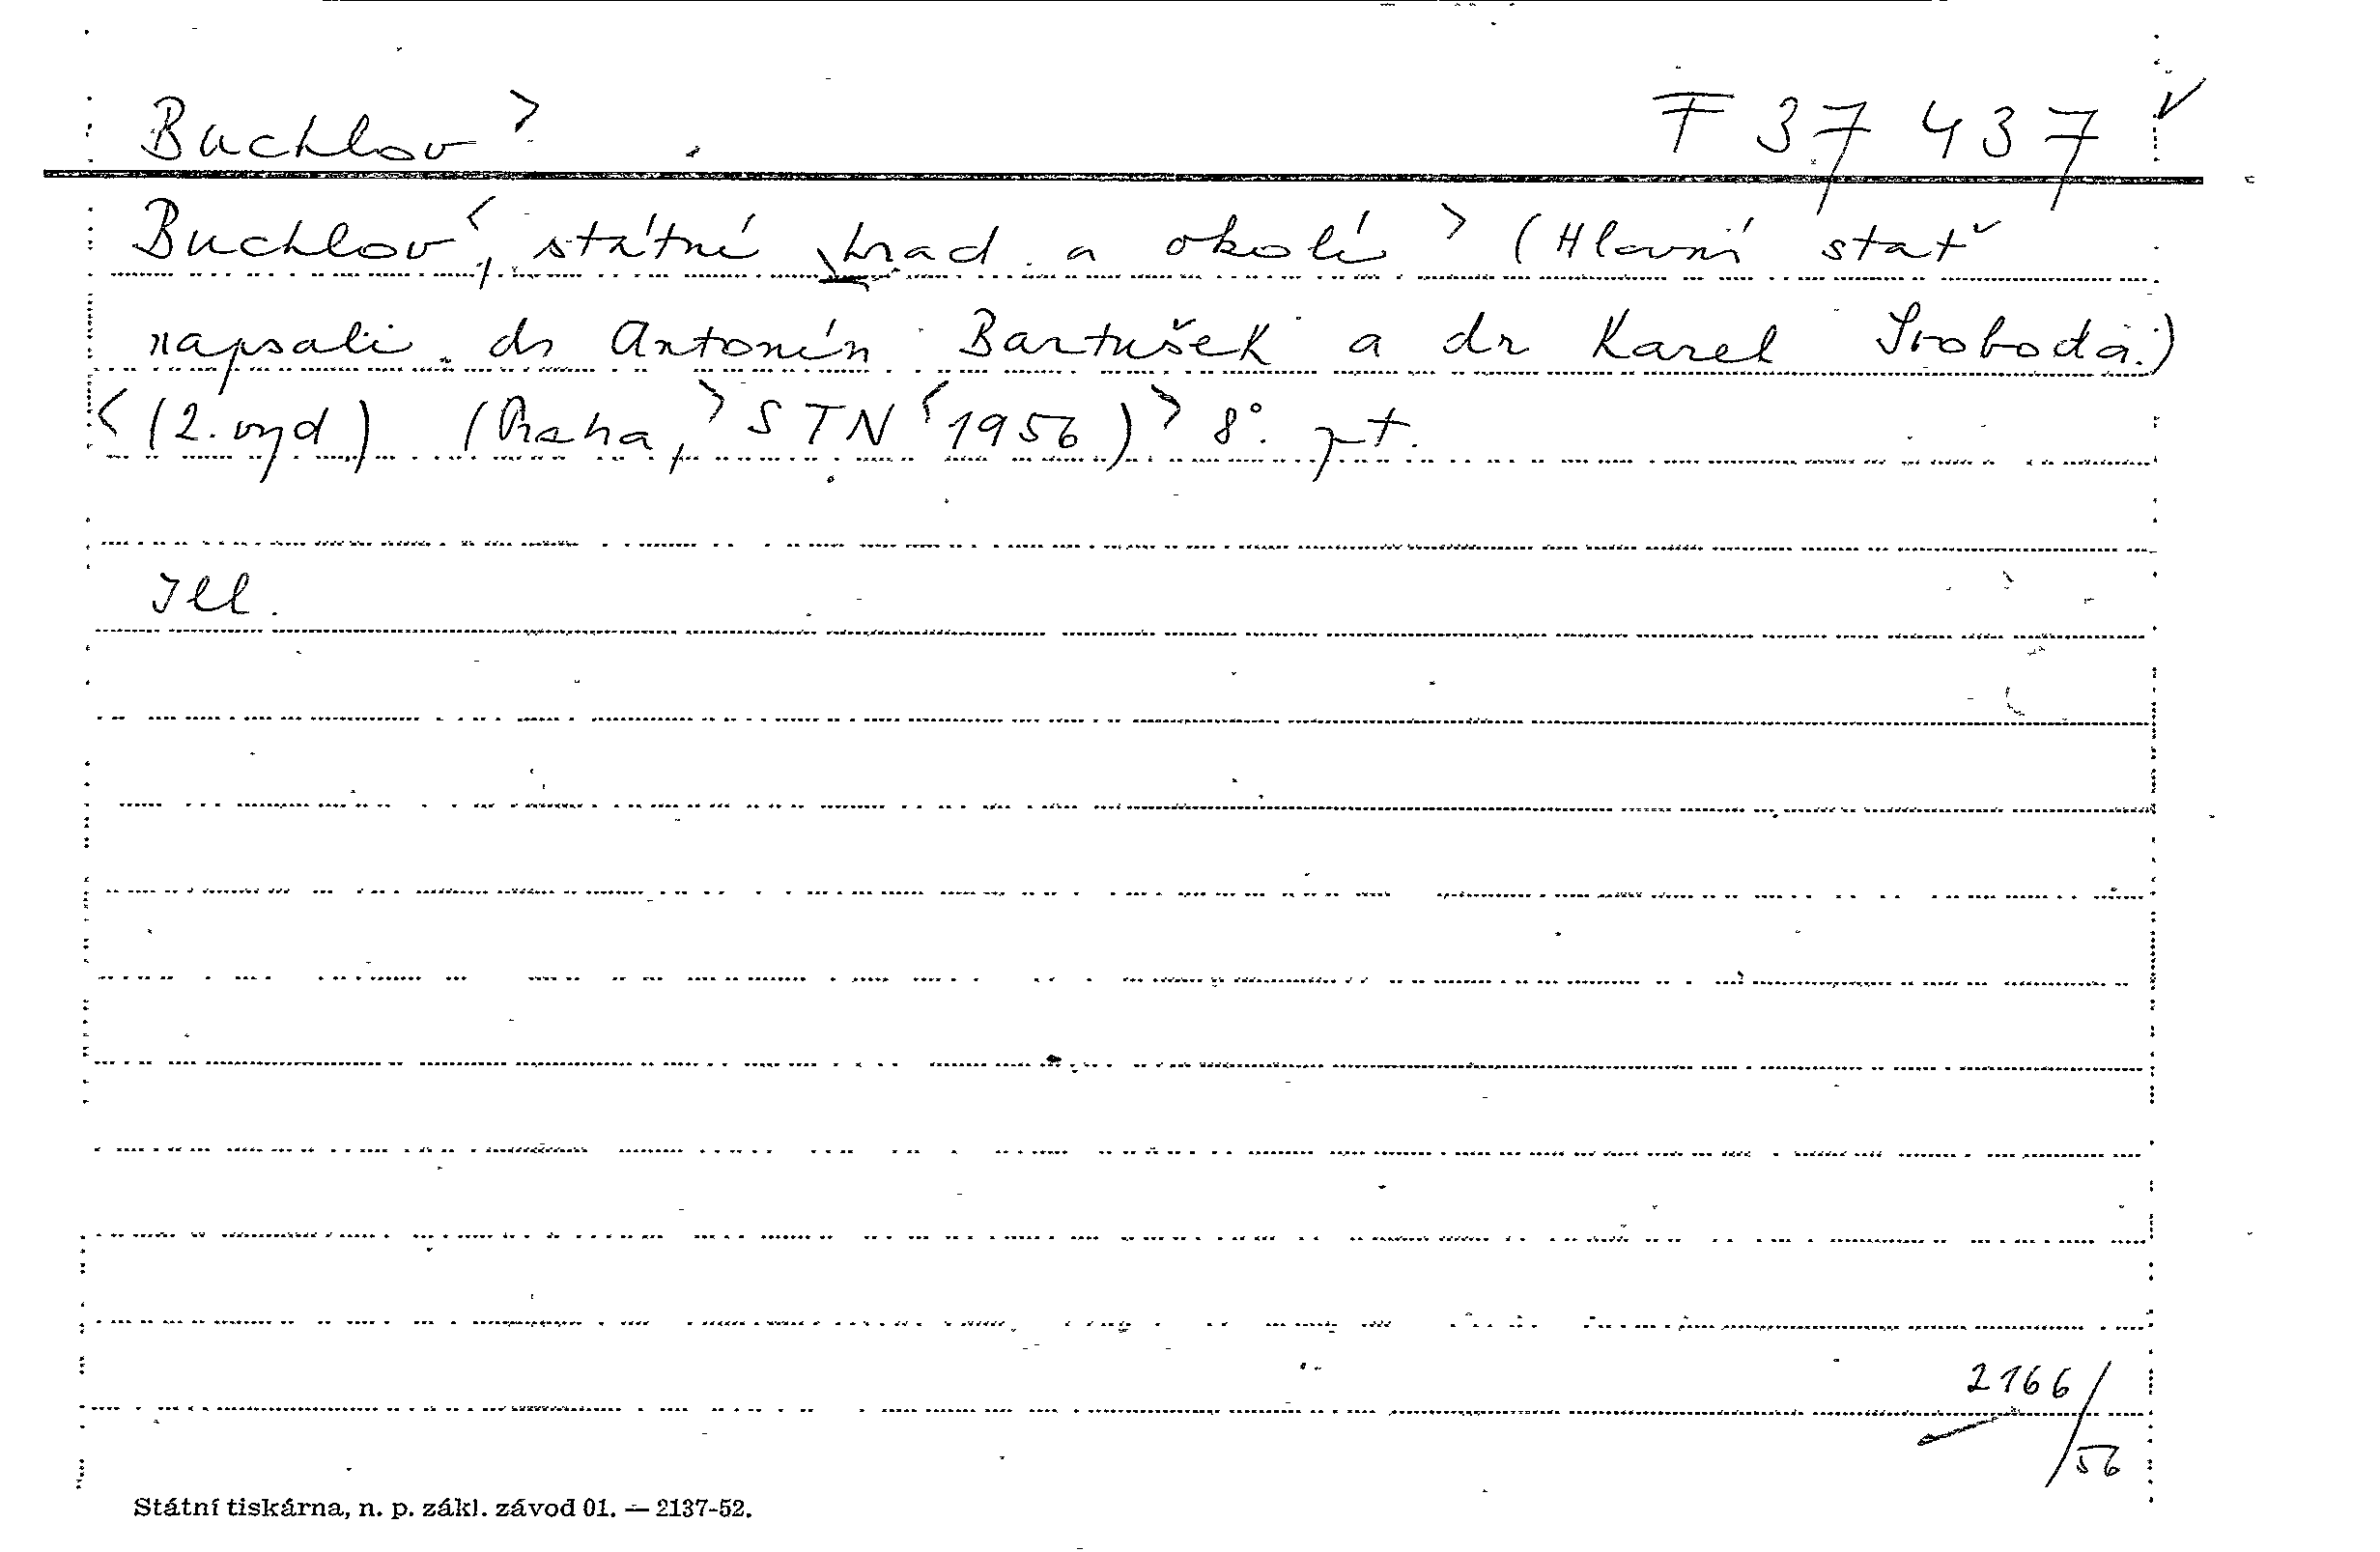 Buchlov > F 37 437
Buchlov <, státní hrad a okolí > (Hlavní stať
napsali dr Antonín Bartušek a dr Karel Svoboda.)
< (2. vyd) (Praha, > STN < 1956) > 8°. pt.
Ill.
2166/
56
Státní tiskárna, n. p. zákl. závod 01. — 2137-52.